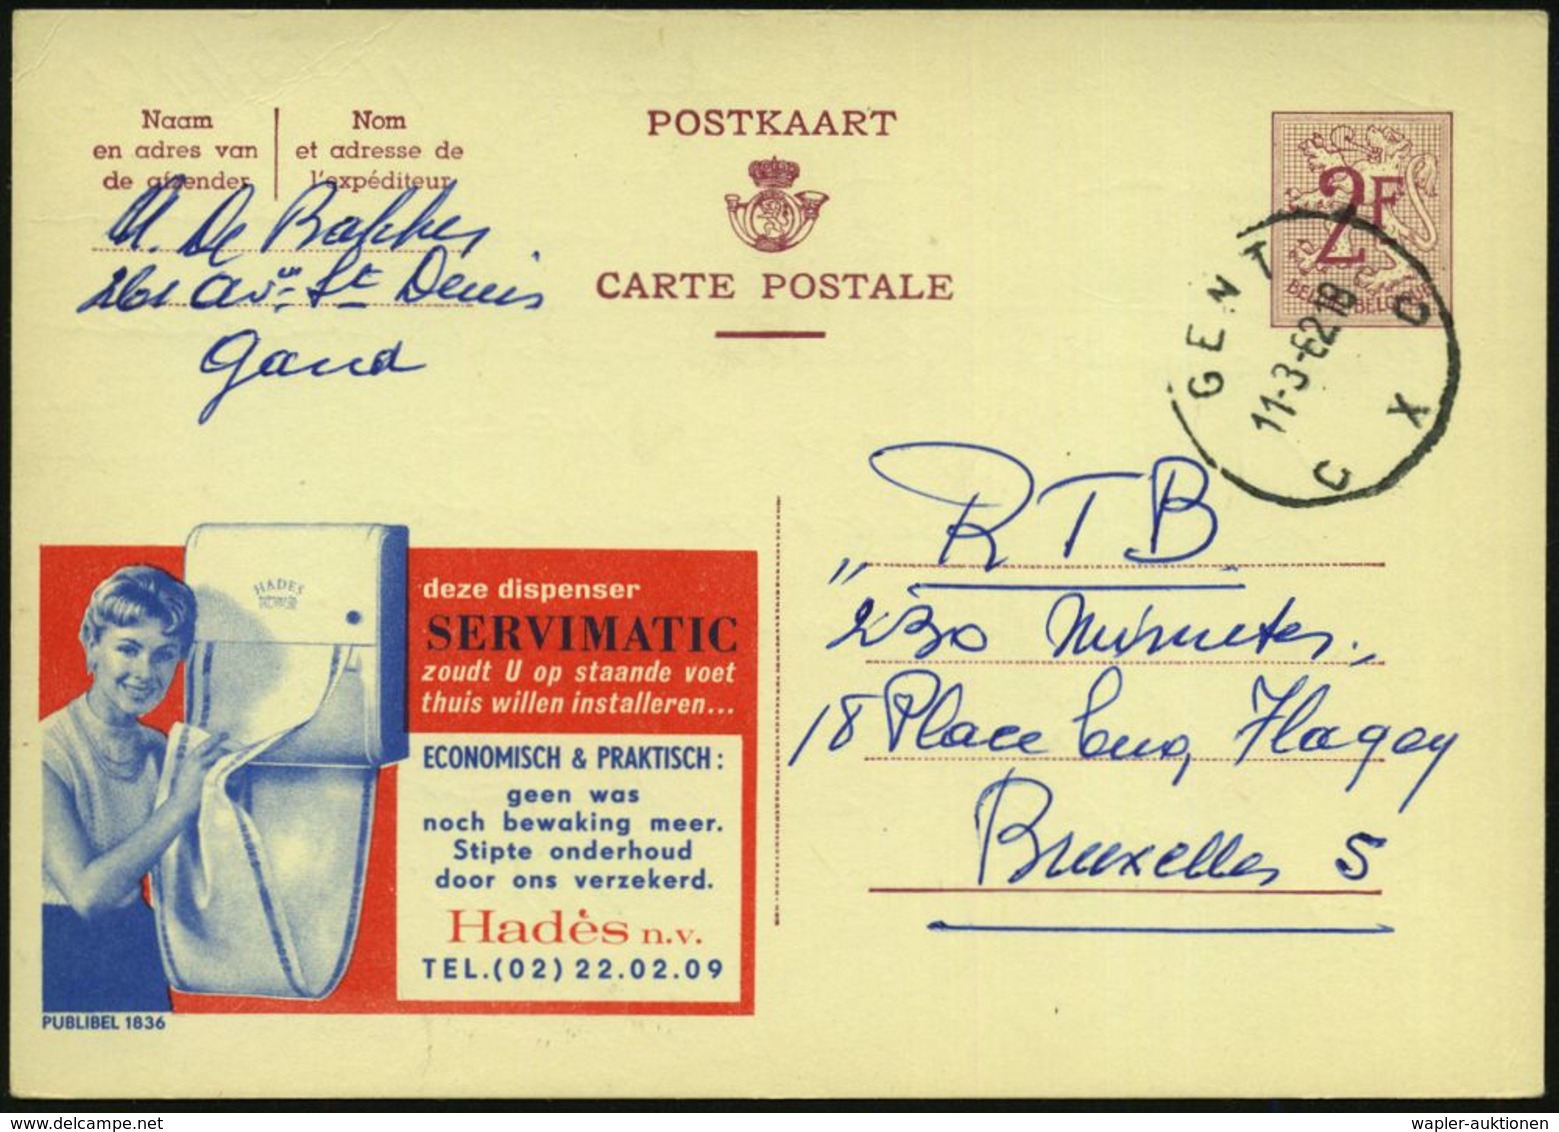 Naam
en adres van
de afzender
Nom
et adresse de
l'expéditeur
POSTKAART
CARTE POSTALE
2F
BELGIE-BELGIQUE
GENT
11-3-62 18
C X C
De Bakker
261 Avue St Denis
Gand
RTB
"230 Minutes"
18 Place Flagey
Bruxelles 5
HADES
deze dispenser
SERVIMATIC
zoudt U op staande voet
thuis willen installeren...
ECONOMISCH & PRAKTISCH:
geen was
noch bewaking meer.
Stipte onderhoud
door ons verzekerd.
Hadès n.v.
TEL.(02) 22.02.09
PUBLIBEL 1836
wapler-auktionen